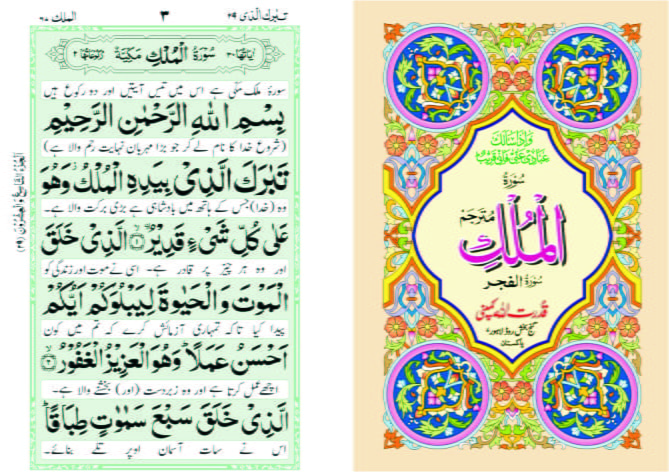 تبٰرك الّذی ٢٩
٣
الملك ٦٧
اٰیاتها ٣٠
سُوْرَةُ الْمُلْكِ مَكِّیَّةٌ
رکوعاتها ٢
سورۂ ملک مکی ہے اس میں تیس آیتیں اور دو رکوع ہیں
بِسْمِ اللهِ الرَّحْمٰنِ الرَّحِیْمِ
(شروع خدا کا نام لے کر جو بڑا مہربان نہایت رحم والا ہے)
تَبٰرَكَ الَّذِیْ بِیَدِهِ الْمُلْكُ وَهُوَ
وہ (خدا) جس کے ہاتھ میں بادشاہی ہے بڑی برکت والا ہے۔
عَلٰی كُلِّ شَیْءٍ قَدِیْرُ ۨ ۙ﴿١﴾ الَّذِیْ خَلَقَ
اور وہ ہر چیز پر قادر ہے۔ اسی نے موت اور زندگی کو
الْمَوْتَ وَالْحَیٰوةَ لِیَبْلُوَكُمْ اَیُّكُمْ
پیدا کیا تاکہ تمہاری آزمائش کرے کہ تم میں کون
اَحْسَنُ عَمَلًا ؕ وَهُوَ الْعَزِیْزُ الْغَفُوْرُ ۙ﴿٢﴾
اچھے عمل کرتا ہے اور وہ زبردست (اور) بخشنے والا ہے۔
الَّذِیْ خَلَقَ سَبْعَ سَمٰوٰتٍ طِبَاقًا ؕ
اس نے سات آسمان اوپر تلے بنائے۔
وَاِذَا سَاَلَكَ
عِبَادِیْ عَنِّیْ فَاِنِّیْ قَرِیْبٌ
سُوْرَةُ
مترجم
الْمُلْكِ
سُوْرَةُ الفجر
قدرت اللہ کمپنی
گنج بخش روڈ لاہور
پاکستان